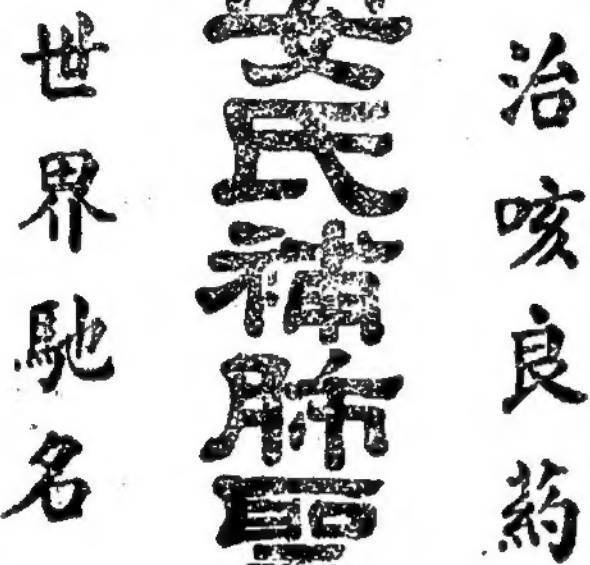 治咳良葯
氏補肺
世界馳名